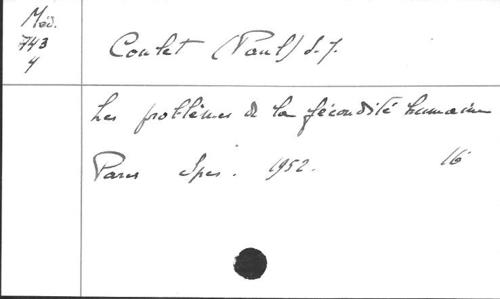 Méd.
743
4
Coulet (Paul) S. J.
Les problèmes de la fécondité humaine
Paris Spes. 1952. 16